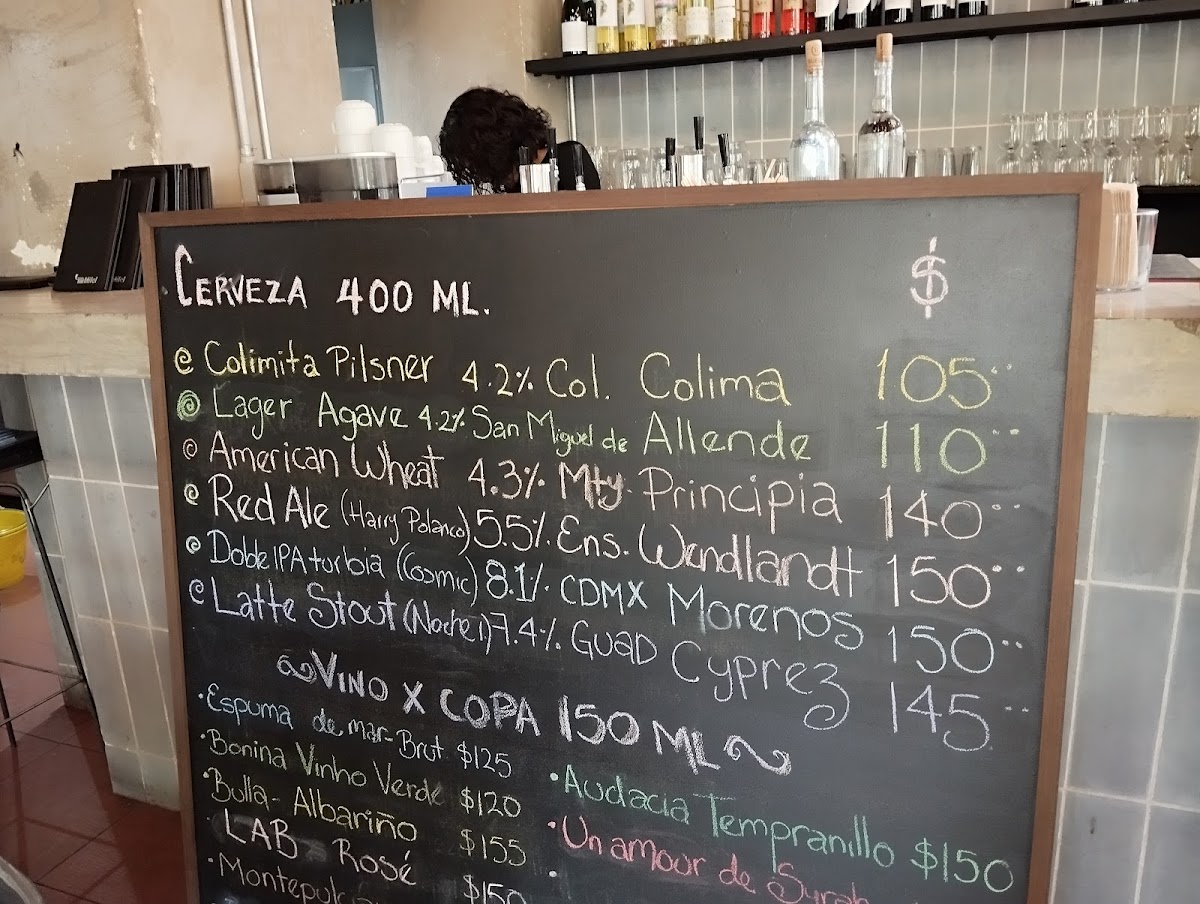 CERVEZA 400 ML. $
Colimita Pilsner 4.2% Col. Colima 105
Lager Agave 4.2% San Miguel de Allende 110
American Wheat 4.3% Mty. Principia 140
Red Ale (Harry Polanco) 5.5% Ens. Wendlandt 150
Doble IPA turbia (Cosmic) 8.1% CDMX Morenos 150
Latte Stout (Noche i) 7.4% GUAD Cyprez 145
VINO X COPA 150 ML
Espuma de mar - Brut $125
Bonina Vinho Verde $120
Bulla - Albariño $155
LAB - Rosé $150
Audacia Tempranillo $150
Un amour de Syrah